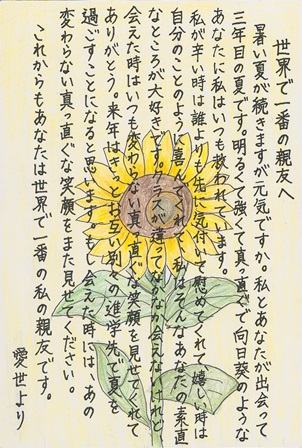 世界で一番の親友へ
暑い夏が続きますが元気ですか。私とあなたが出会って
三年目の夏です。明るくて強くて真っ直ぐで向日葵のような
あなたに私はいつも救われています。
私が辛い時は誰よりも先に気付いて慰めてくれて嬉しい時は
自分のことのように喜んでくれる。私はそんなあなたの素直
なところが大好きです。クラスが違ってなかなか会えないけれど
会えた時はいつも変わらない真っ直ぐな笑顔を見せてくれて
ありがとう。来年はきっとお互い別々の進学先で夏を
過ごすことになると思います。でも、会えた時には、あの
変わらない真っ直ぐな笑顔をまた見せてください。
これからもあなたは世界で一番の私の親友です。
愛世より